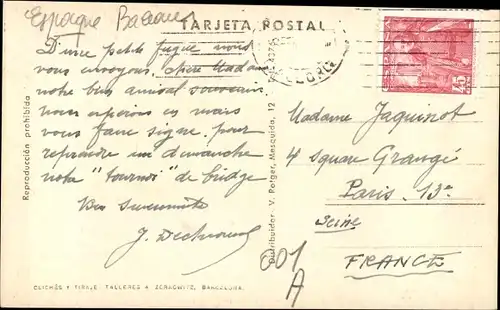 Espagne Baleares
TARJETA POSTAL
D'une petite fugue nous
vous envoyons, chère Madame
notre bien amical souvenir.
nous espérons en mars
vous faire signe pour
reprendre un dimanche
notre "tournoi" de bridge
Bon
J.
Reproducción prohibida
Distribuidor: V. Polger, Mesquida, 12
45
Madame Jaquinot
4 square Grangé
Paris. 13e
Seine
FRANCE
001
A
CLICHÉS Y TIRAJE TALLERES A. ZERKOWITZ, BARCELONA.